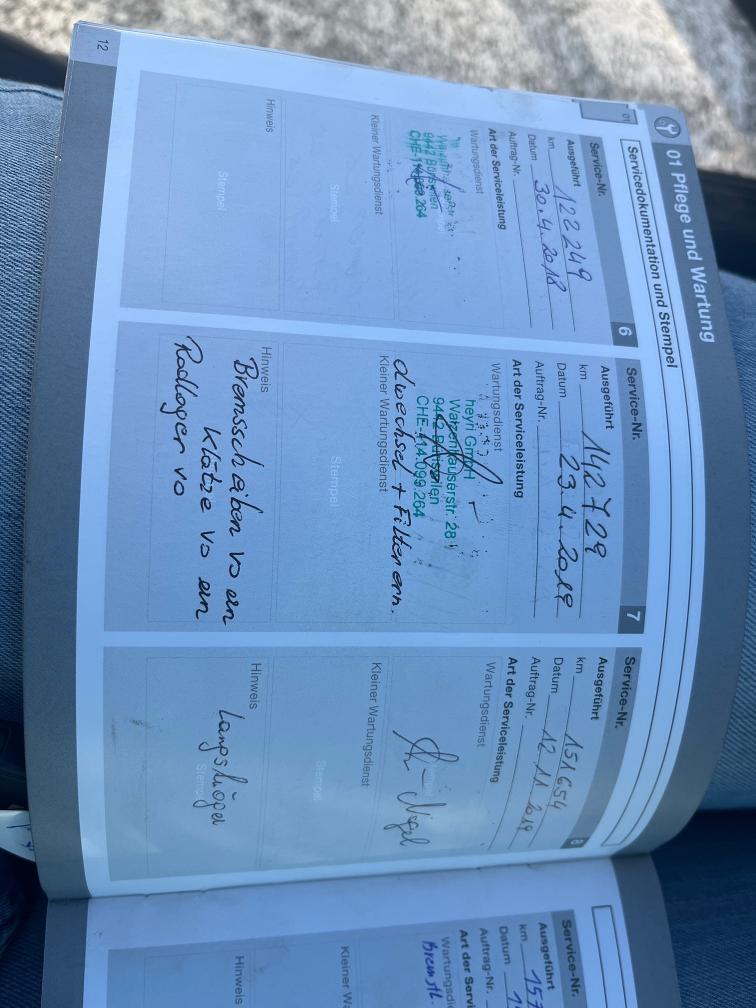 01 Pflege und Wartung
Servicedokumentation und Stempel
01
Service-Nr. 6
Ausgeführt
km 122249
Datum 30.4.2018
Auftrag-Nr.
Art der Serviceleistung
Wartungsdienst
9442 B
CHE-1 264
Kleiner Wartungsdienst
Stempel
Hinweis
Stempel
Service-Nr. 7
Ausgeführt
km 142729
Datum 23.4.2019
Auftrag-Nr.
Art der Serviceleistung
Wartungsdienst
heyri GmbH
Watzenhauserstr. 28
9442
CHE-114.099.264
dwechsel + Filter ern.
Kleiner Wartungsdienst
Stempel
Hinweis
Bremsscheiben vo ern
Klötze vo ern
Radlager vo
Service-Nr. 8
Ausgeführt
km 151654
Datum 12.11.2019
Auftrag-Nr.
Art der Serviceleistung
Wartungsdienst
Kleiner Wartungsdienst
Stempel
Hinweis
Stempel
12
Service-Nr.
Ausgeführt
km 15
Datum 1
Auftrag-Nr.
Art der Servi
Wartungsdi
Bremsfl.
Kleiner W
Hinweis